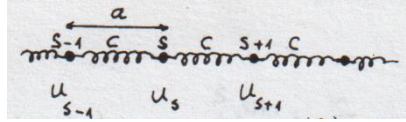 a
s-1 c s c s+1 c
u s-1 u s u s+1